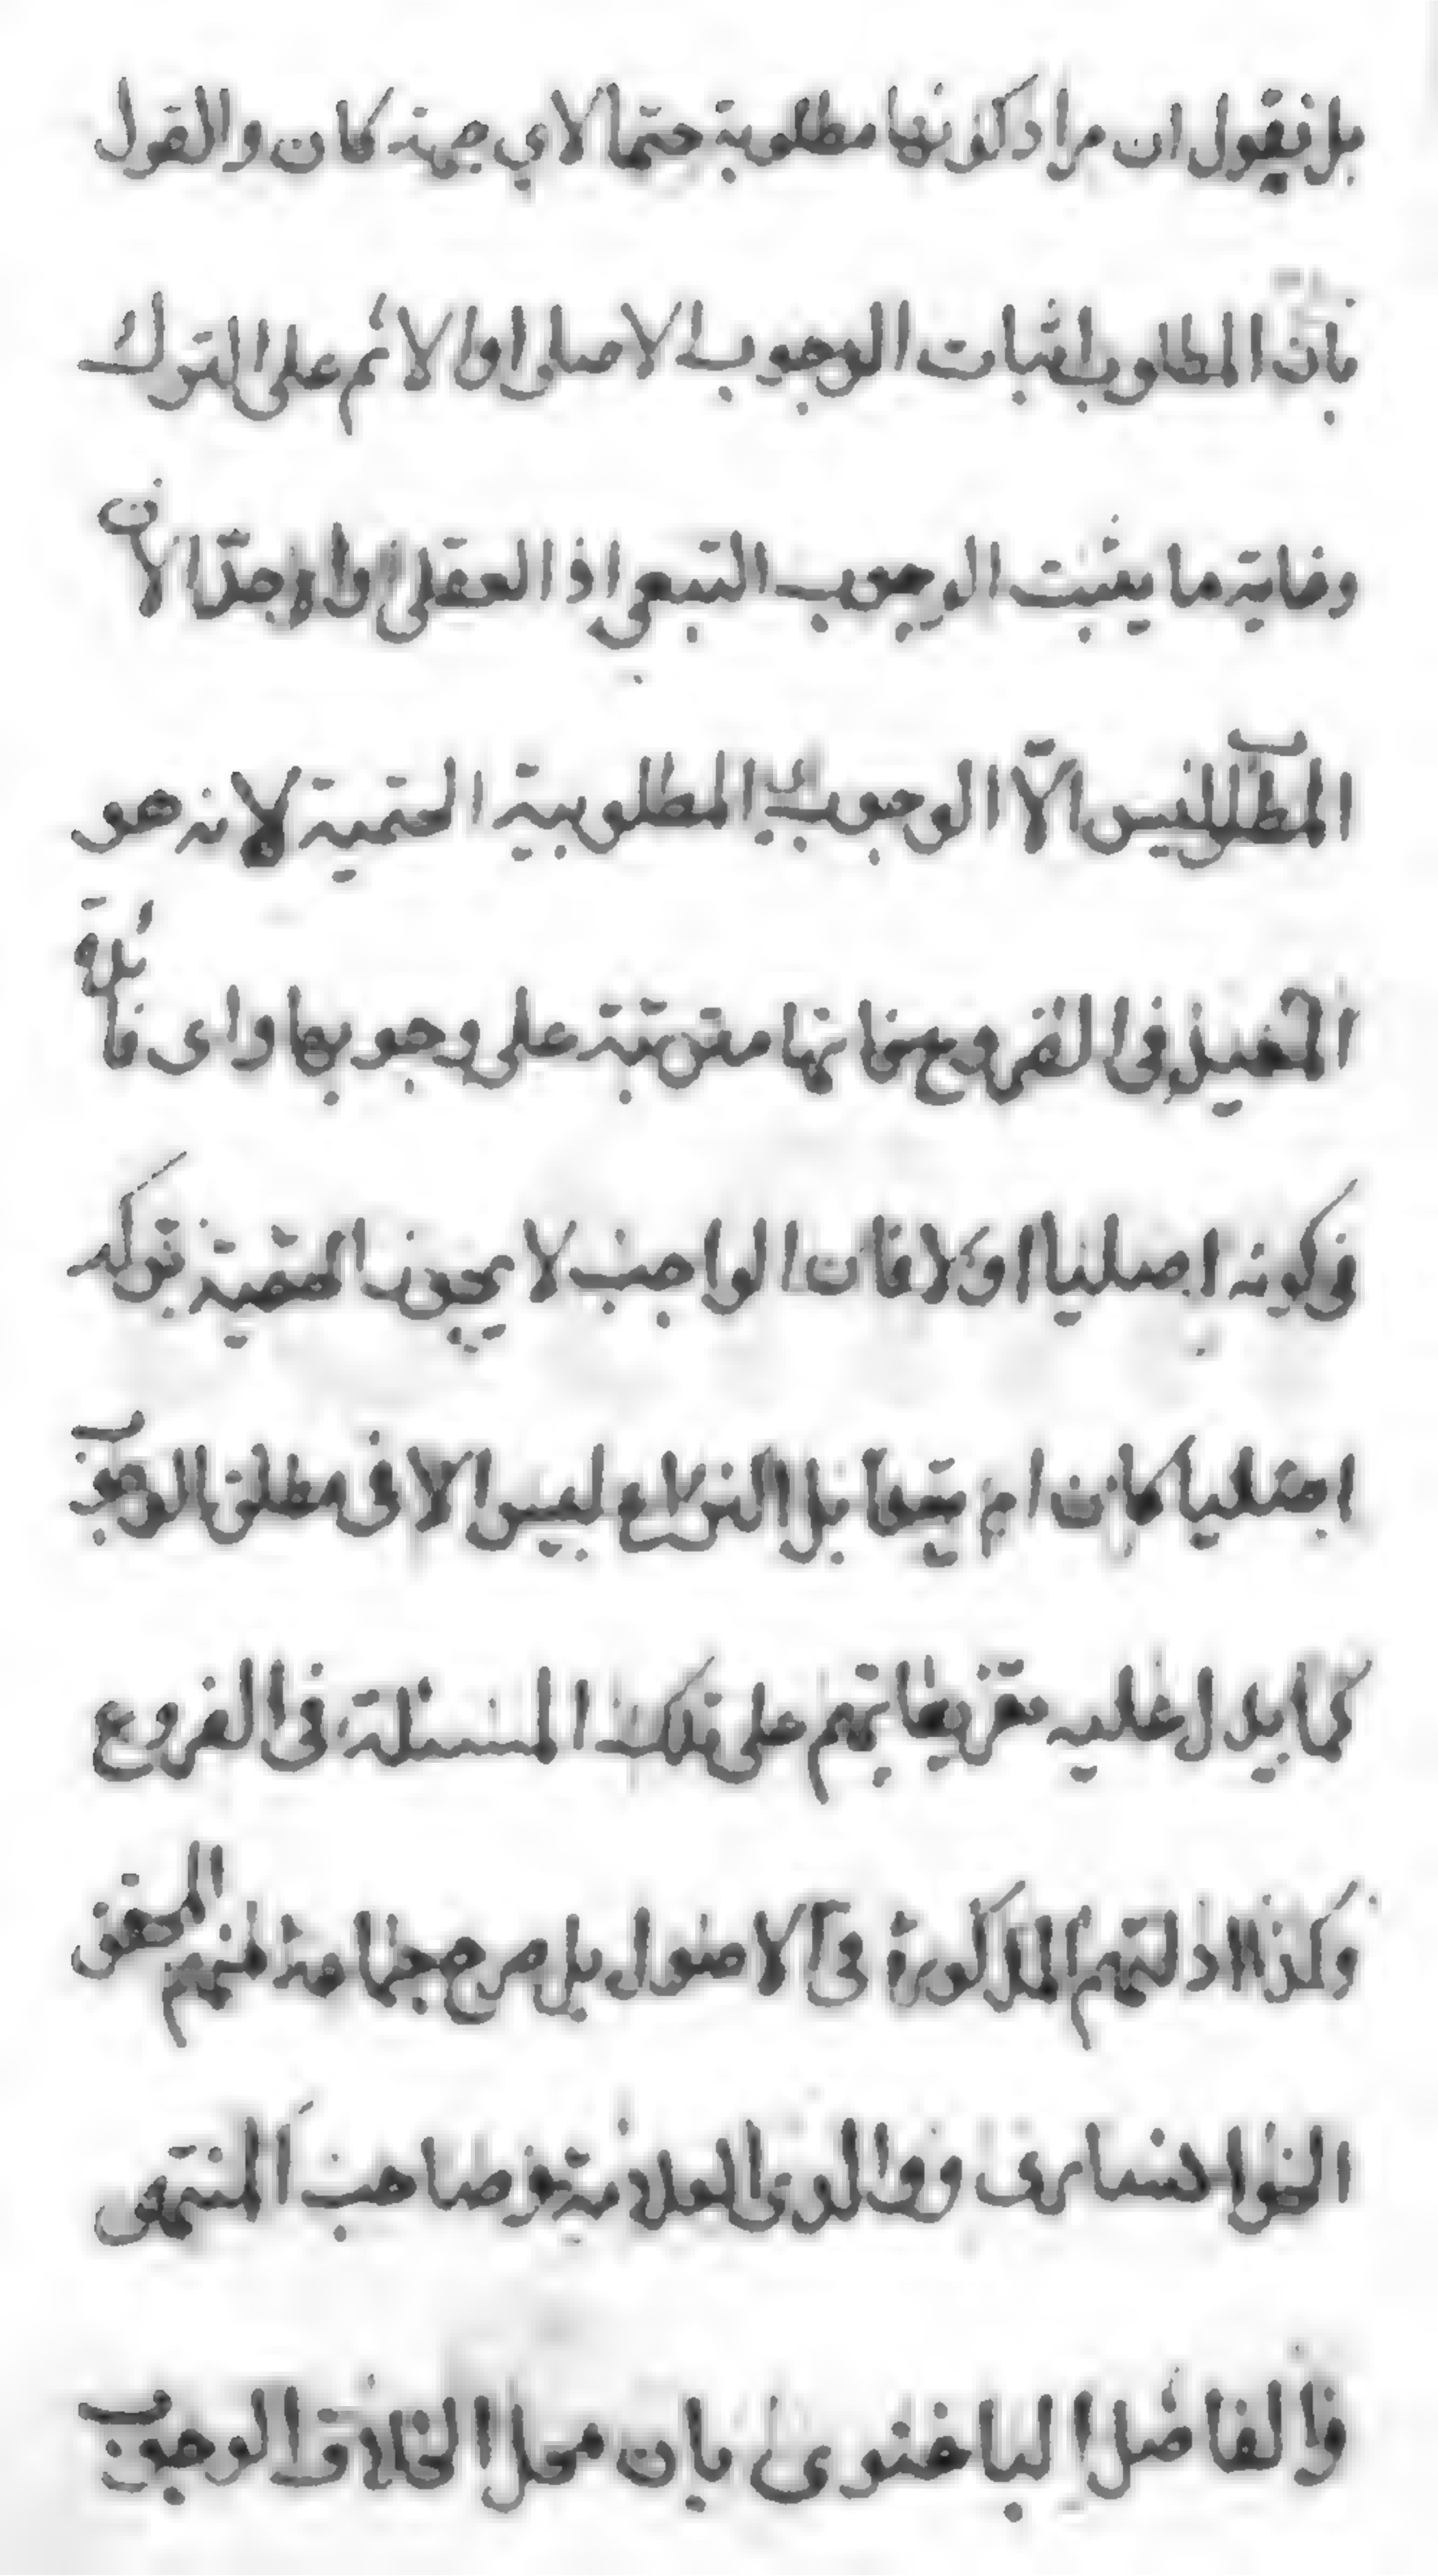 بل نقول ان مراد كونها مطلوبة حتما لاي جهة كان والقول
بان المطلوب اثبات الوجوب الاصلى او الاثم على الترك
وغاية ما يثبت الوجوب التبعي اذ العقلى واه جدا لان
المطلوب ليس الّا الوجوب المطلوبية الحتمية لانه هو
المفيد فى الفروع فانها مترتبة على وجوبها واى فائدة
فى كونه اصليا اولا فان الواجب لا يجوز التقية تركه
اصليا كان ام تبعيا بل النزاع ليس الا فى مطلق الوجوب
كما يدل عليه تفريعاتهم على تلك المسئلة فى الفروع
وكذا ادلتهم المذكورة فى الاصول بل صرح جماعة منهم المحقق
الخوانسارى ووالدى العلامة وصاحب المنتهى
والفاضل الباغنوى بان محل الخلاف الوجوب